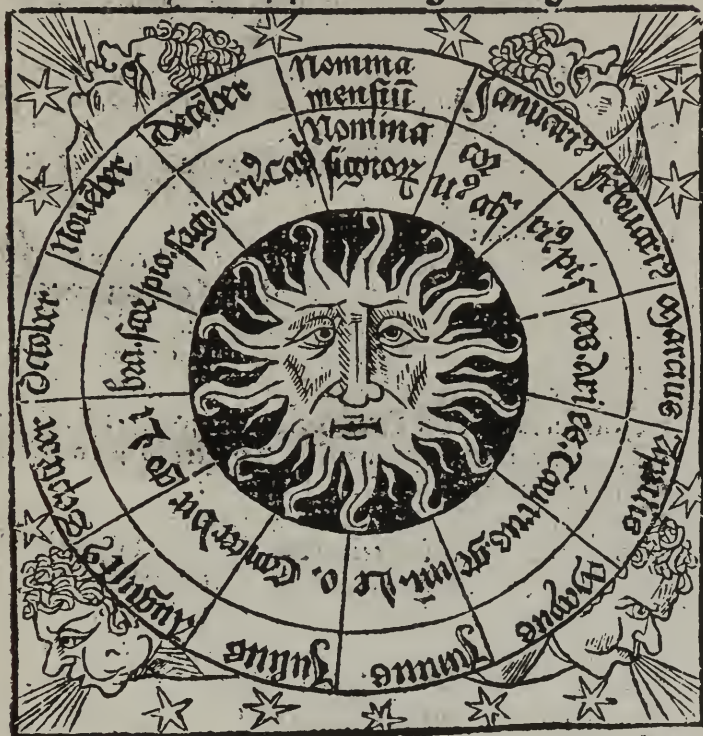 Nomina
mensiũ
Januari⁹
februari⁹
Marcius
Aprilis
Mayus
Junius
Julius
Augustꝰ
Septẽber
October
Nouẽber
Decẽber
Nomina
signoꝝ
cor
n⁹ aq̃
ri⁹. pis
ces. aries. Taurus. ge
mĩ. Le
o. Cancer
go. Li
bra. scor
pio. sagi
tari⁹. cap